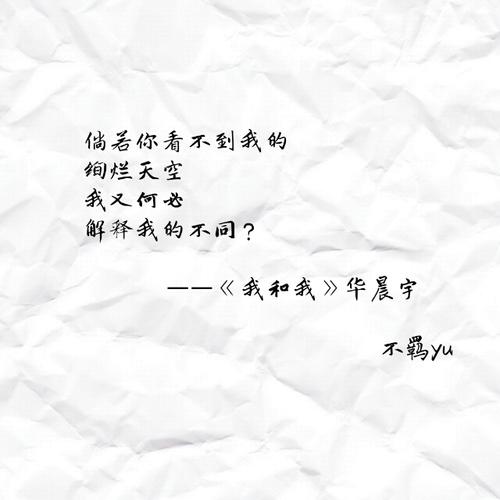 倘若你看不到我的
绚烂天空
我又何必
解释我的不同？
——《我和我》华晨宇
不羁yu